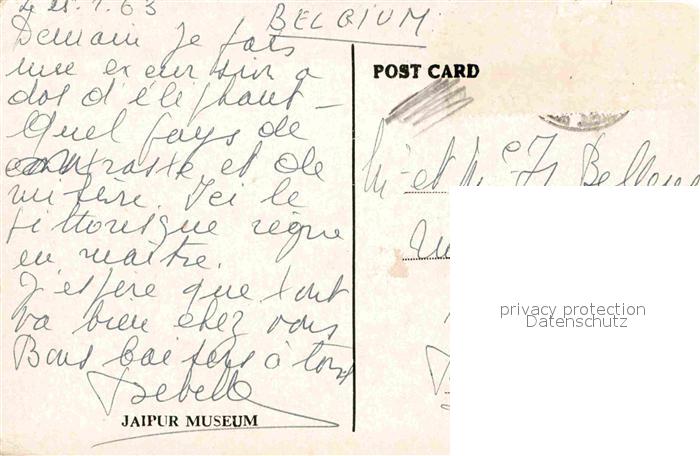 Le 25.1.63
BELGIUM
Demain je fais
une excursion a
dos d'éléphant -
Quel pays de
contraste et de
misère. Ici le
pittoresque règne
en maître.
J'espère que tout
va bien chez vous
Bons baisers à tous
JAIPUR MUSEUM
POST CARD
et
privacy protection
Datenschutz